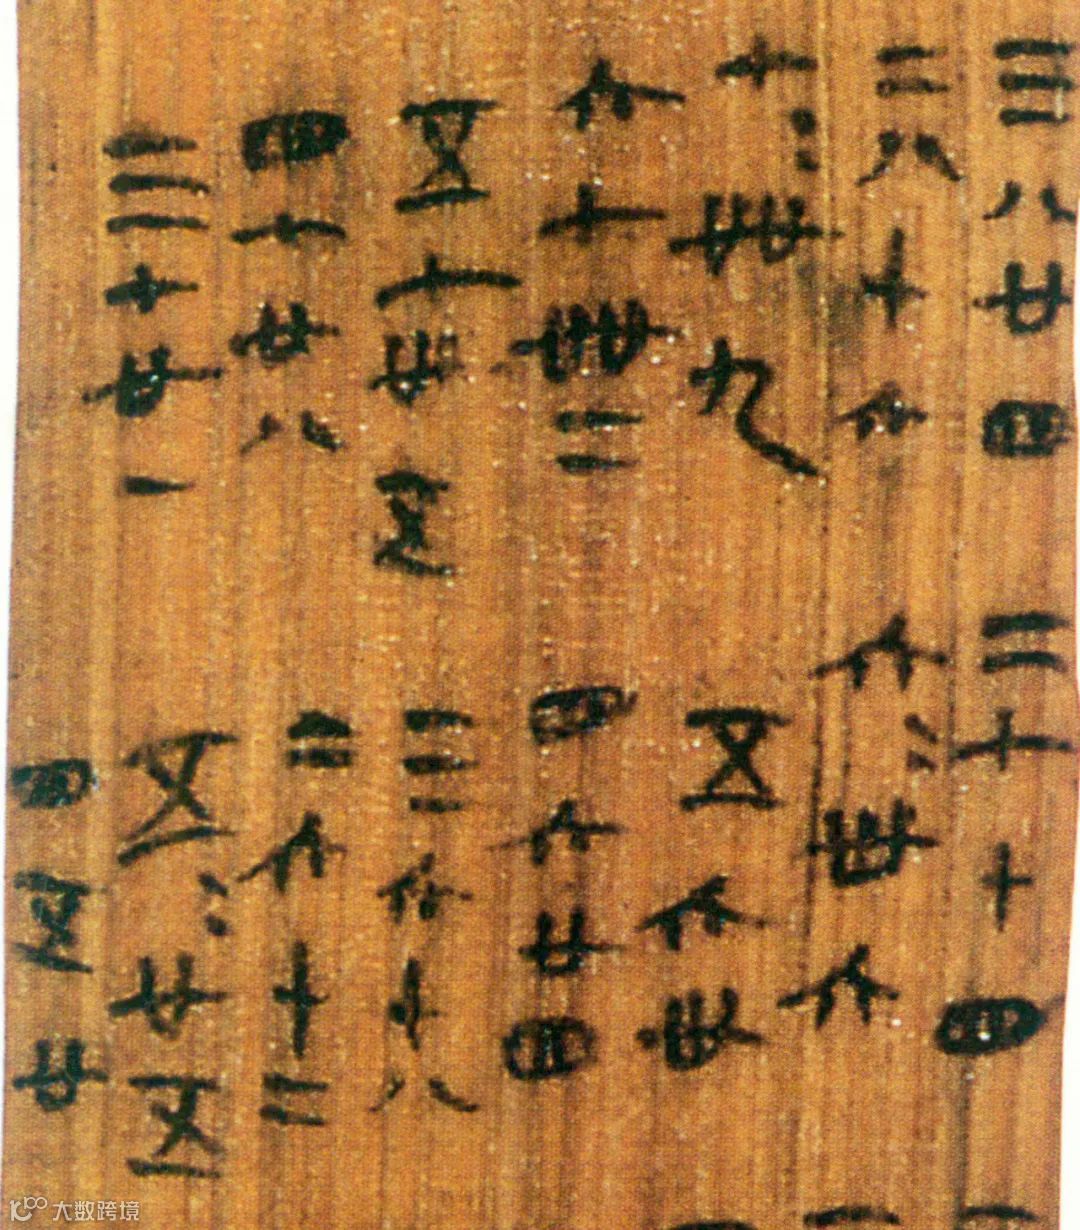 三八廿四
二八十六
七〻卌九
六七卌二
五七卅五
四七廿八
三七廿一
二七十四
六〻卅六
五六卅
四六廿四
三六十八
二六十二
五〻廿五
四五廿
大数跨境